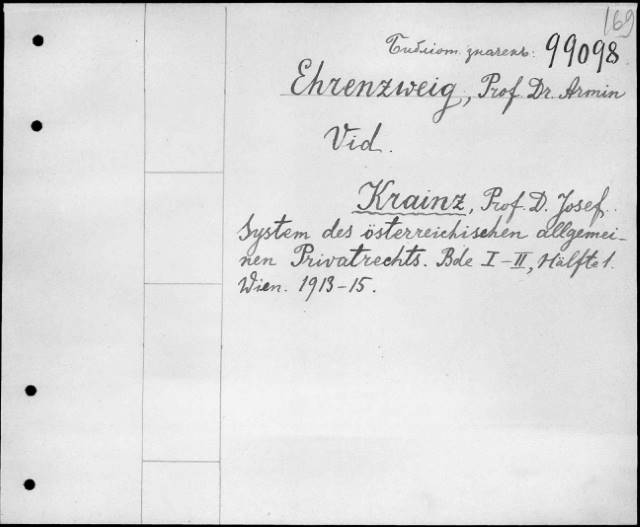 169
Библиот. значекъ: 99098
Ehrenzweig, Prof. Dr. Armin
Vid.
Krainz, Prof. D. Josef.
System des österreichischen allgemei-
nen Privatrechts. Bde I-II, Hälfte 1.
Wien. 1913-15.